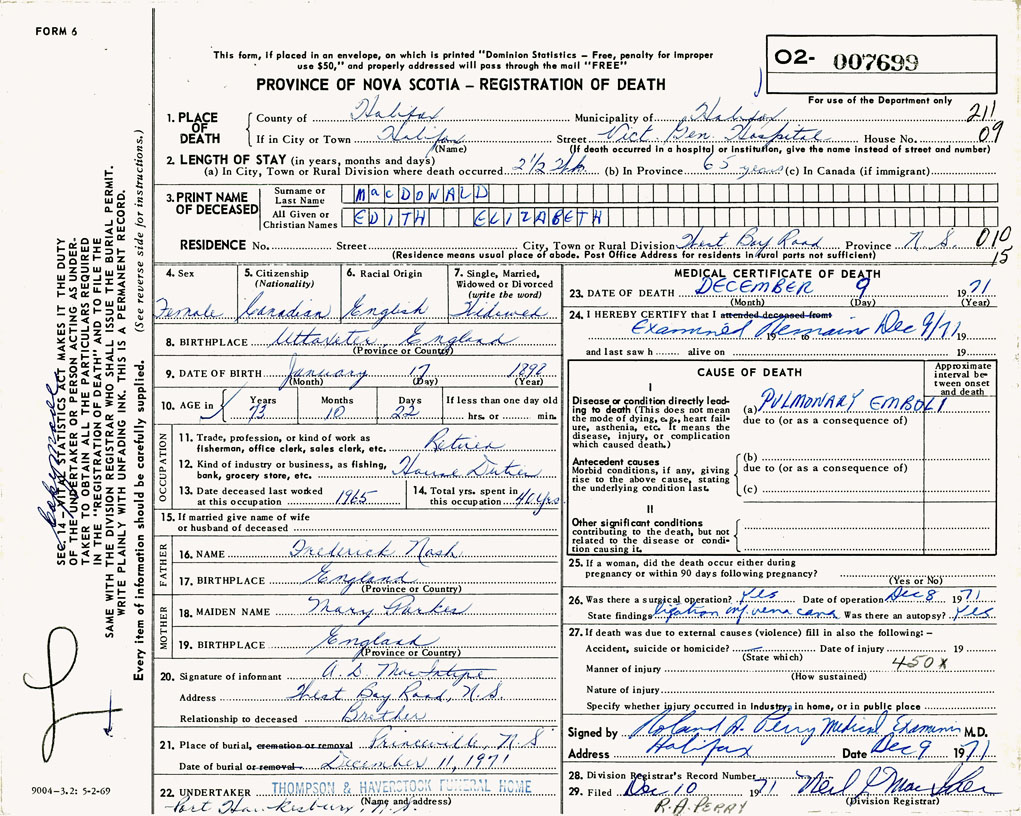 FORM 6
This form, if placed in an envelope, on which is printed "Dominion Statistics – Free, penalty for improper
use $50," and properly addressed will pass through the mail "FREE"
PROVINCE OF NOVA SCOTIA – REGISTRATION OF DEATH
O2- 007699
For use of the Department only
1. PLACE OF DEATH
County of Halifax Municipality of Halifax 211
If in City or Town Halifax Street Vict. Gen. Hospital House No. 09
(Name) (If death occurred in a hospital or institution, give the name instead of street and number)
2. LENGTH OF STAY (in years, months and days)
(a) In City, Town or Rural Division where death occurred 2½ (b) In Province 65 years (c) In Canada (if immigrant)
3. PRINT NAME OF DECEASED
Surname or Last Name MacDONALD
All Given or Christian Names EDITH ELIZABETH
RESIDENCE No. Street City, Town or Rural Division West Bay Road Province N. S. 010
15
(Residence means usual place of abode. Post Office Address for residents in rural parts not sufficient)
4. Sex Female
5. Citizenship (Nationality) Canadian
6. Racial Origin English
7. Single, Married, Widowed or Divorced (write the word) Widowed
8. BIRTHPLACE Uttoxeter, England
(Province or Country)
9. DATE OF BIRTH January 17
(Month) (Day) (Year)
10. AGE in Years Months Days If less than one day old
73 10 22 hrs. or min.
OCCUPATION
11. Trade, profession, or kind of work as
fisherman, office clerk, sales clerk, etc. Retired
12. Kind of industry or business, as fishing,
bank, grocery store, etc. House Duties
13. Date deceased last worked
at this occupation 1965
14. Total yrs. spent in
this occupation 41 yrs
15. If married give name of wife
or husband of deceased
FATHER
16. NAME Frederick Nash
17. BIRTHPLACE England
(Province or Country)
MOTHER
18. MAIDEN NAME Mary Parkes
19. BIRTHPLACE England
(Province or Country)
20. Signature of informant A. D. MacIntyre
Address West Bay Road, N. S.
Relationship to deceased Brother
21. Place of burial, cremation or removal Princeville, N S
Date of burial or removal December 11, 1971
22. UNDERTAKER THOMPSON & HAVERSTOCK FUNERAL HOME
(Name and address)
Port Hawkesbury, N. S.
MEDICAL CERTIFICATE OF DEATH
23. DATE OF DEATH DECEMBER 9 1971
(Month) (Day) (Year)
24. I HEREBY CERTIFY that I attended deceased from
Examined Remains Dec 9/71
19 to 19
and last saw h alive on 19
CAUSE OF DEATH
Approximate interval between onset and death
I
Disease or condition directly leading to death (This does not
mean the mode of dying, e.g., heart failure, asthenia, etc. It means the
disease, injury, or complication
which caused death.)
(a) PULMONARY EMBOLI
due to (or as a consequence of)
Antecedent causes
Morbid conditions, if any, giving
rise to the above cause, stating
the underlying condition last.
(b)
due to (or as a consequence of)
(c)
II
Other significant conditions
contributing to the death, but not
related to the disease or condition causing it.
25. If a woman, did the death occur either during
pregnancy or within 90 days following pregnancy?
(Yes or No)
26. Was there a surgical operation? Yes Date of operation Dec 8 1971
State findings ligation inf. vena cava Was there an autopsy? Yes
27. If death was due to external causes (violence) fill in also the following: –
Accident, suicide or homicide? Date of injury 19
(State which) 450 X
Manner of injury
(How sustained)
Nature of injury
Specify whether injury occurred in industry, in home, or in public place
Signed by Roland A. Perry Medical Examiner M.D.
Address Halifax Date Dec 9 1971
28. Division Registrar's Record Number
29. Filed Dec 10 1971
(Division Registrar)
R. A. PERRY
SEC. 14 – VITAL STATISTICS ACT MAKES IT THE DUTY
OF THE UNDERTAKER OR PERSON ACTING AS UNDER-
TAKER TO OBTAIN ALL THE PARTICULARS REQUIRED
IN THE "REGISTRATION OF DEATH" AND TO FILE THE
SAME WITH THE DIVISION REGISTRAR WHO SHALL ISSUE THE BURIAL PERMIT.
WRITE PLAINLY WITH UNFADING INK. THIS IS A PERMANENT RECORD.
Every item of information should be carefully supplied. (See reverse side for instructions.)
9004-3.2: 5-2-69